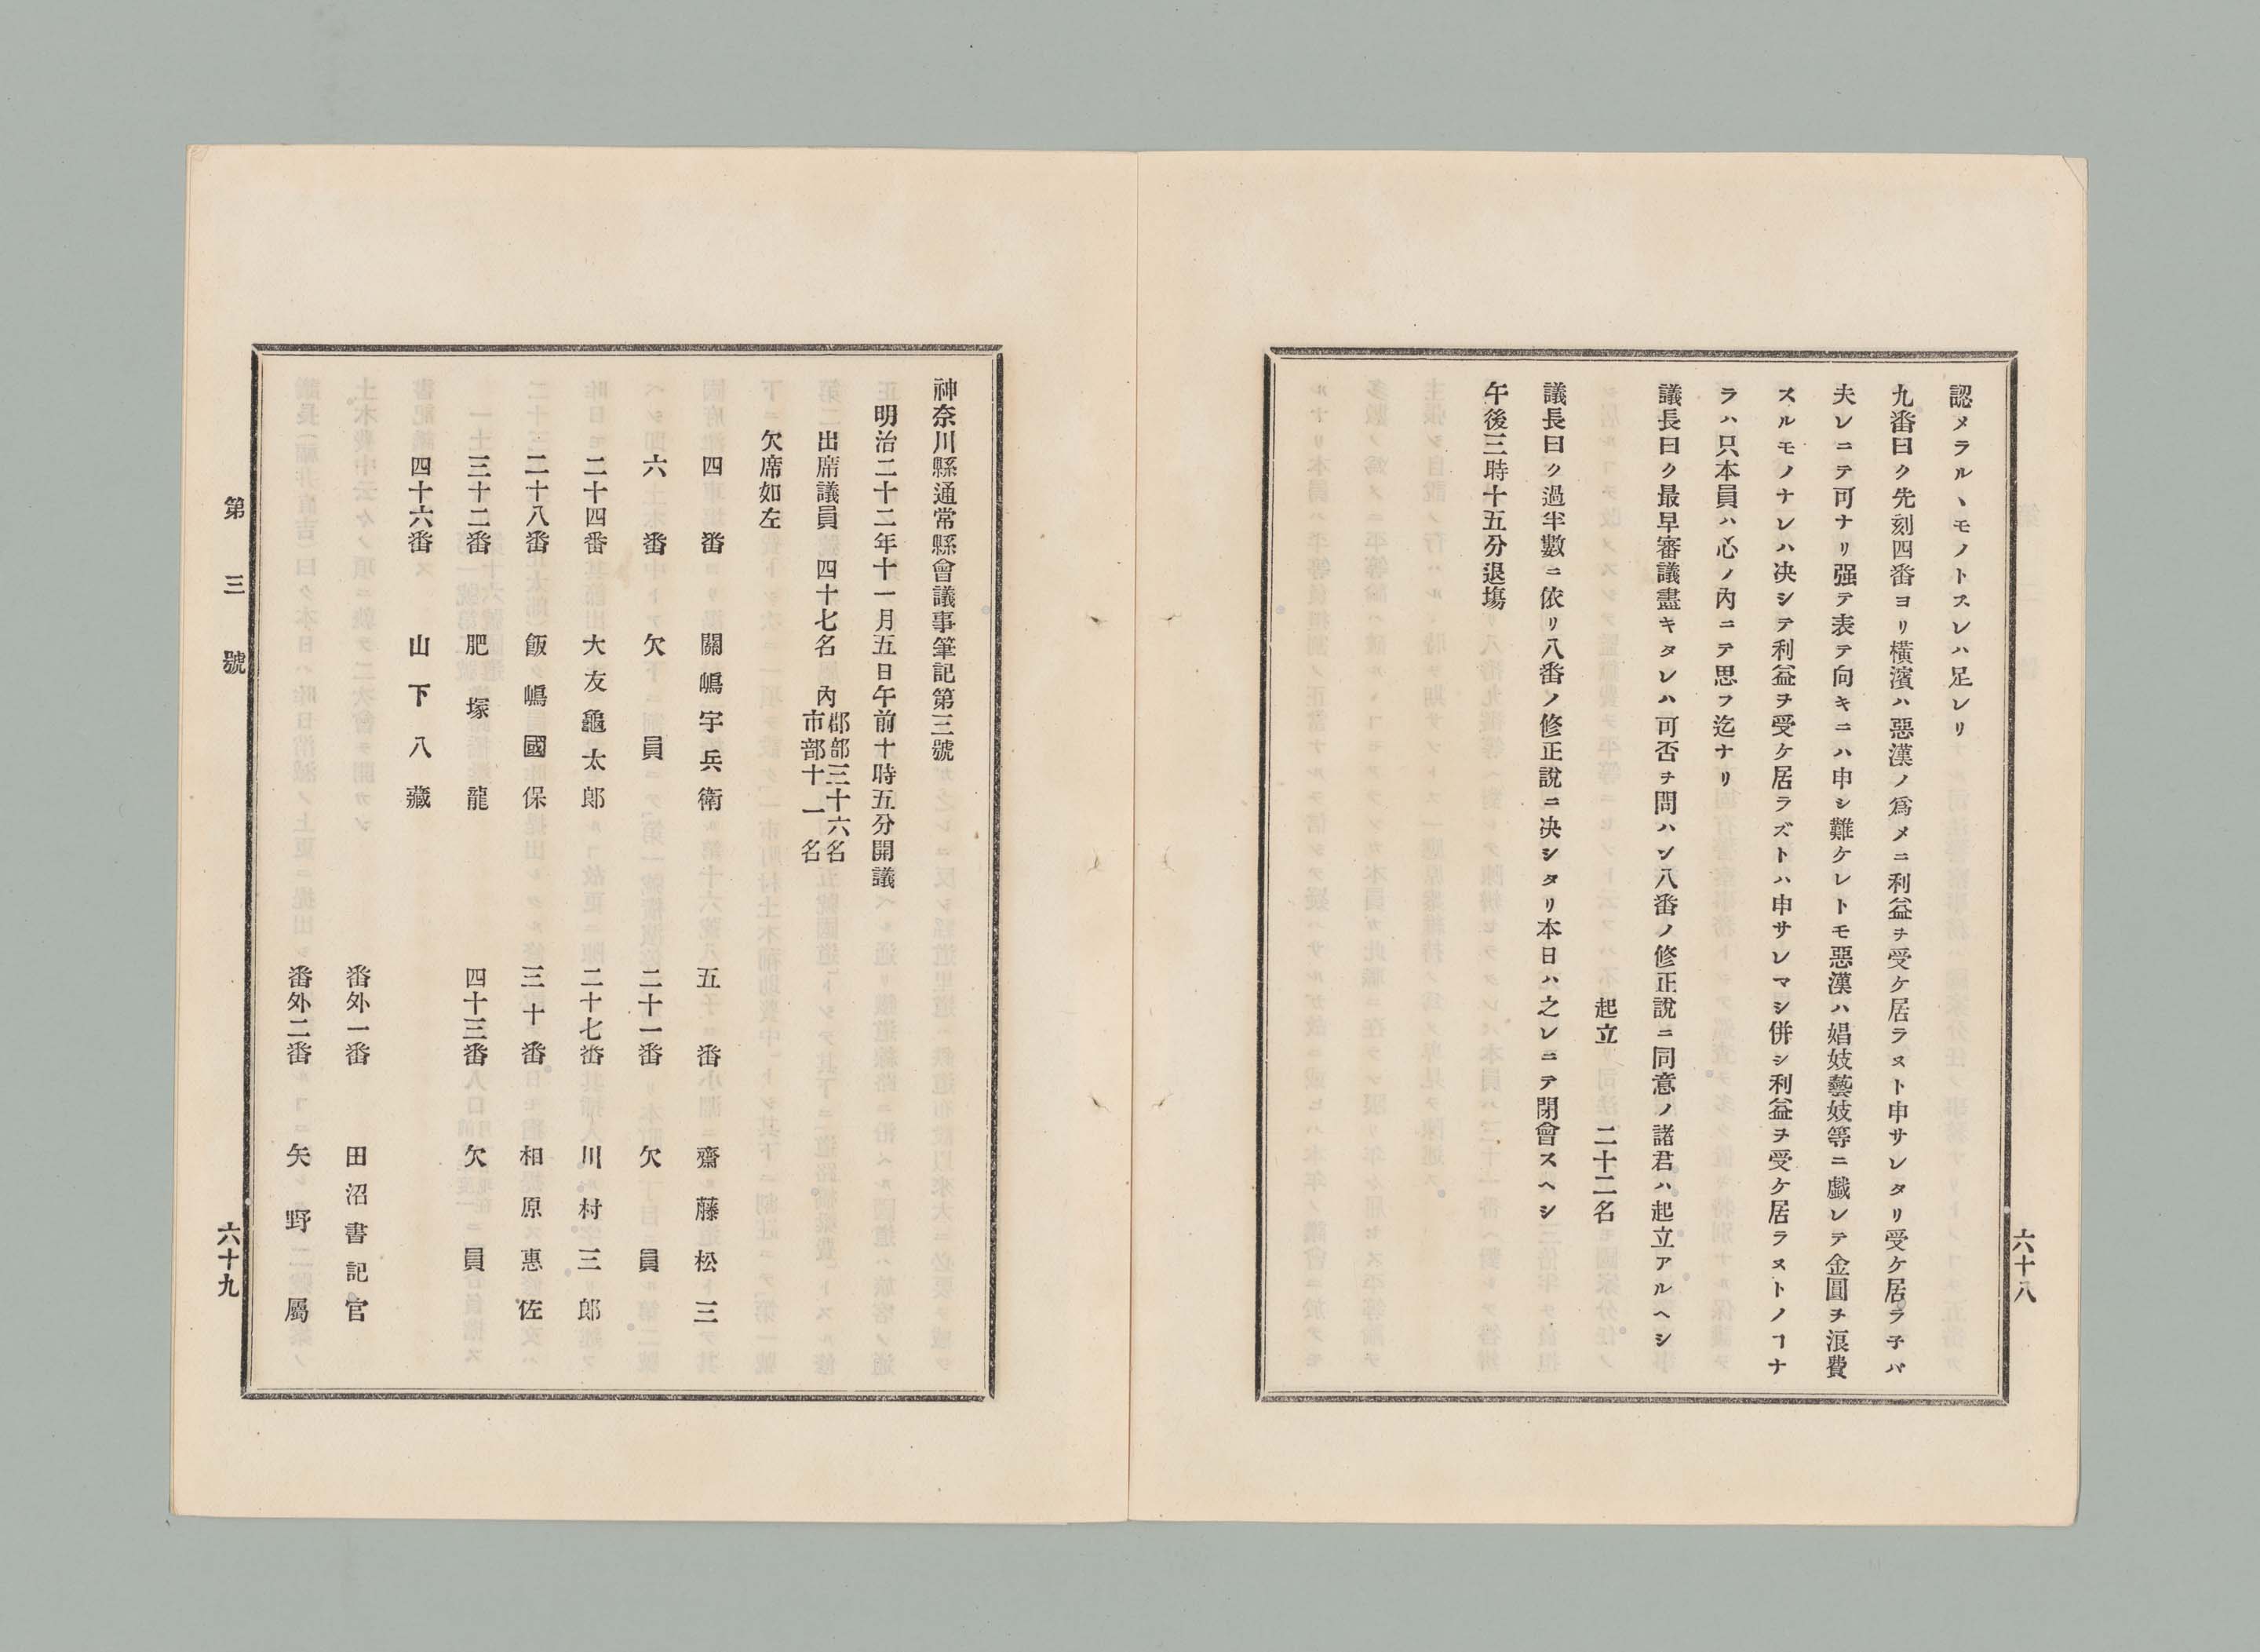 認メラルヽモノトスレハ足レリ
九番曰ク先刻四番ヨリ橫濱ハ惡漢ノ爲メニ利益ヲ受ケ居ラスト申サレタリ受ケ居ラ子バ
夫レニテ可ナリ强テ表テ向キニハ申シ難ケレトモ惡漢ハ娼妓藝妓等ニ戲レテ金圓ヲ浪費
スルモノナレハ决シテ利益ヲ受ケ居ラズトハ申サレマシ併シ利益ヲ受ケ居ラストノヿナ
ラハ只本員ハ心ノ內ニテ思フ迄ナリ
議長曰ク最早審議盡キタレハ可否ヲ問ハン八番ノ修正說ニ同意ノ諸君ハ起立アルヘシ
起立　二十二名
議長曰ク過半數ニ依リ八番ノ修正說ニ决シタリ本日ハ之レニテ閉會スヘシ
午後三時十五分退塲
六十八
神奈川縣通常縣會議事筆記第三號
明治二十二年十一月五日午前十時五分開議
出席議員　四十七名　內　郡部三十六名　市部十一名
欠席如左
四番　關嶋宇兵衛　五番　齋藤松三
六番　欠員　二十一番　欠員
二十四番　大友龜太郎　二十七番　川村三郎
二十八番　飯嶋國保　三十番　相原惠佐
三十二番　肥塚龍　四十三番　欠員
四十六番　山下八藏
番外一番　田沼書記官
番外二番　矢野屬
第三號
六十九